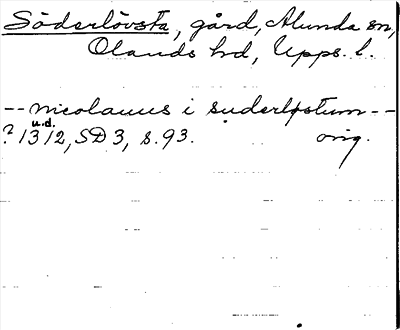 Söderlövsta, gård, Alunda sn,
Olands hd, Upps. l.
-- nicolaus i suderløstum --
u.d.
? 1312, SD 3, s. 93. orig.